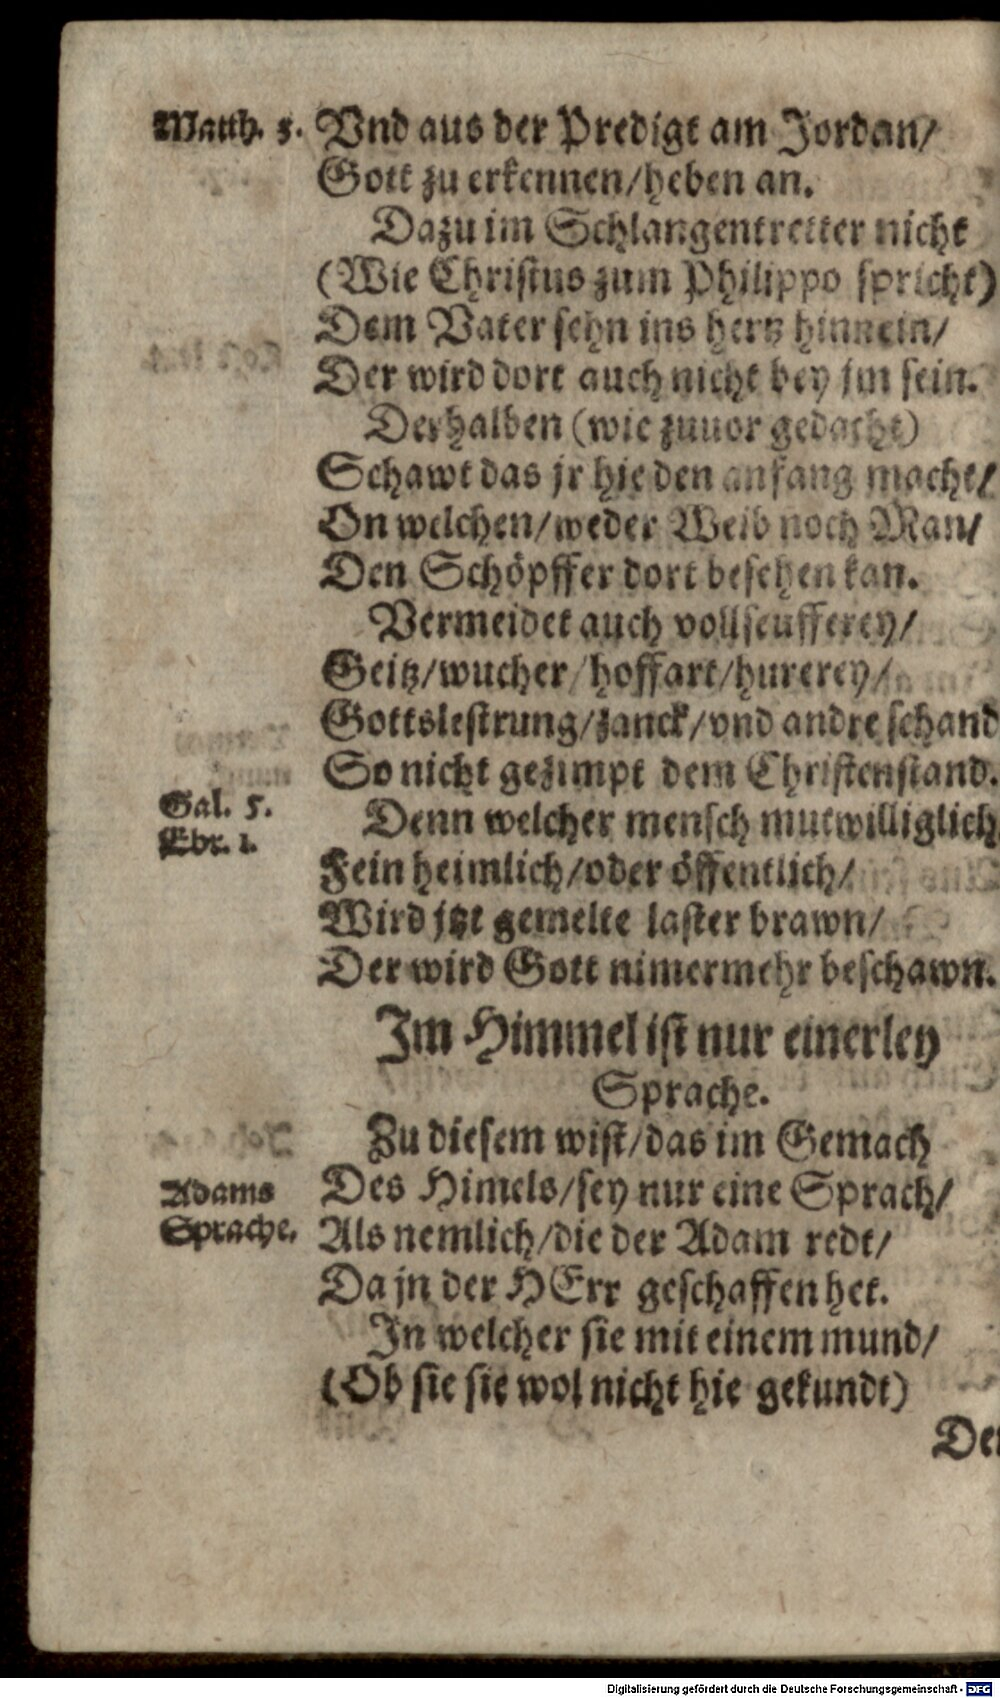 Matth. 5. Vnd aus der Predigt am Jordan/
Gott zu erkennen/heben an.
Dazu im Schlangentretter nicht
(Wie Christus zum Philippo spricht)
Dem Vater sehn ins hertz hinnein/
Der wird dort auch nicht bey jm sein.
Derhalben (wie zuuor gedacht)
Schawt das jr hie den anfang macht/
On welchen/weder Weib noch Man/
Den Schöpffer dort besehen kan.
Vermeidet auch vollseufferey/
Geitz/wucher/hoffart/hurerey/
Gottslestrung/zanck/vnd andre schand
So nicht gezimpt dem Christenstand.
Gal. 5.
Denn welcher mensch mutwilliglich
Ebr. 1.
Fein heimlich/oder öffentlich/
Wird jtzt gemelte laster brawn/
Der wird Gott nimermehr beschawn.
Im Himmel ist nur einerley
Sprache.
Zu diesem wist/das im Gemach
Adams
Des Himels/sey nur eine Sprach/
Sprache.
Als nemlich/die der Adam redt/
Da jn der HErr geschaffen het.
In welcher sie mit einem mund/
(Ob sie sie wol nicht hie gekundt)
Digitalisierung gefördert durch die Deutsche Forschungsgemeinschaft - DFG